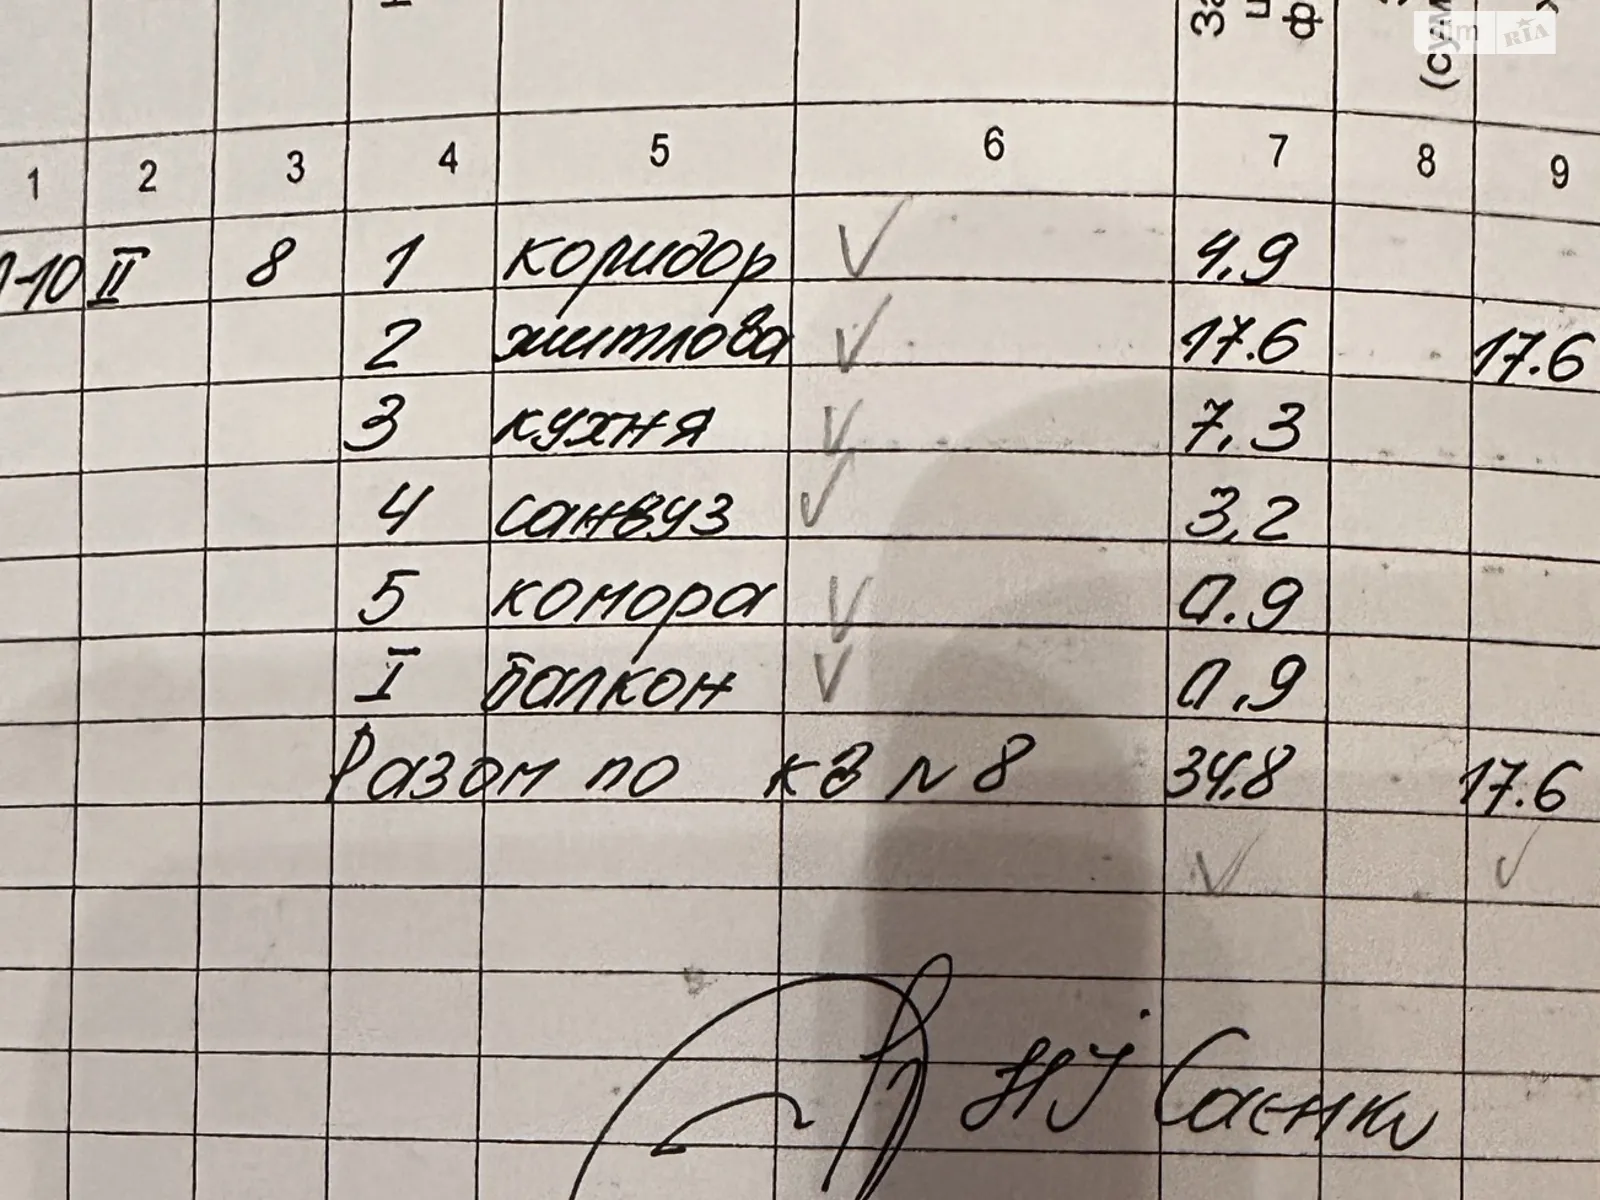 За
ц
ф
(сум
dim RIA
1 2 3 4 5 6 7 8 9
1-10 II 8 1 коридор 4.9
2 житлова 17.6 17.6
3 кухня 7.3
4 санвуз 3,2
5 комора 0.9
I балкон 0.9
Разом по кв № 8 34.8 17.6